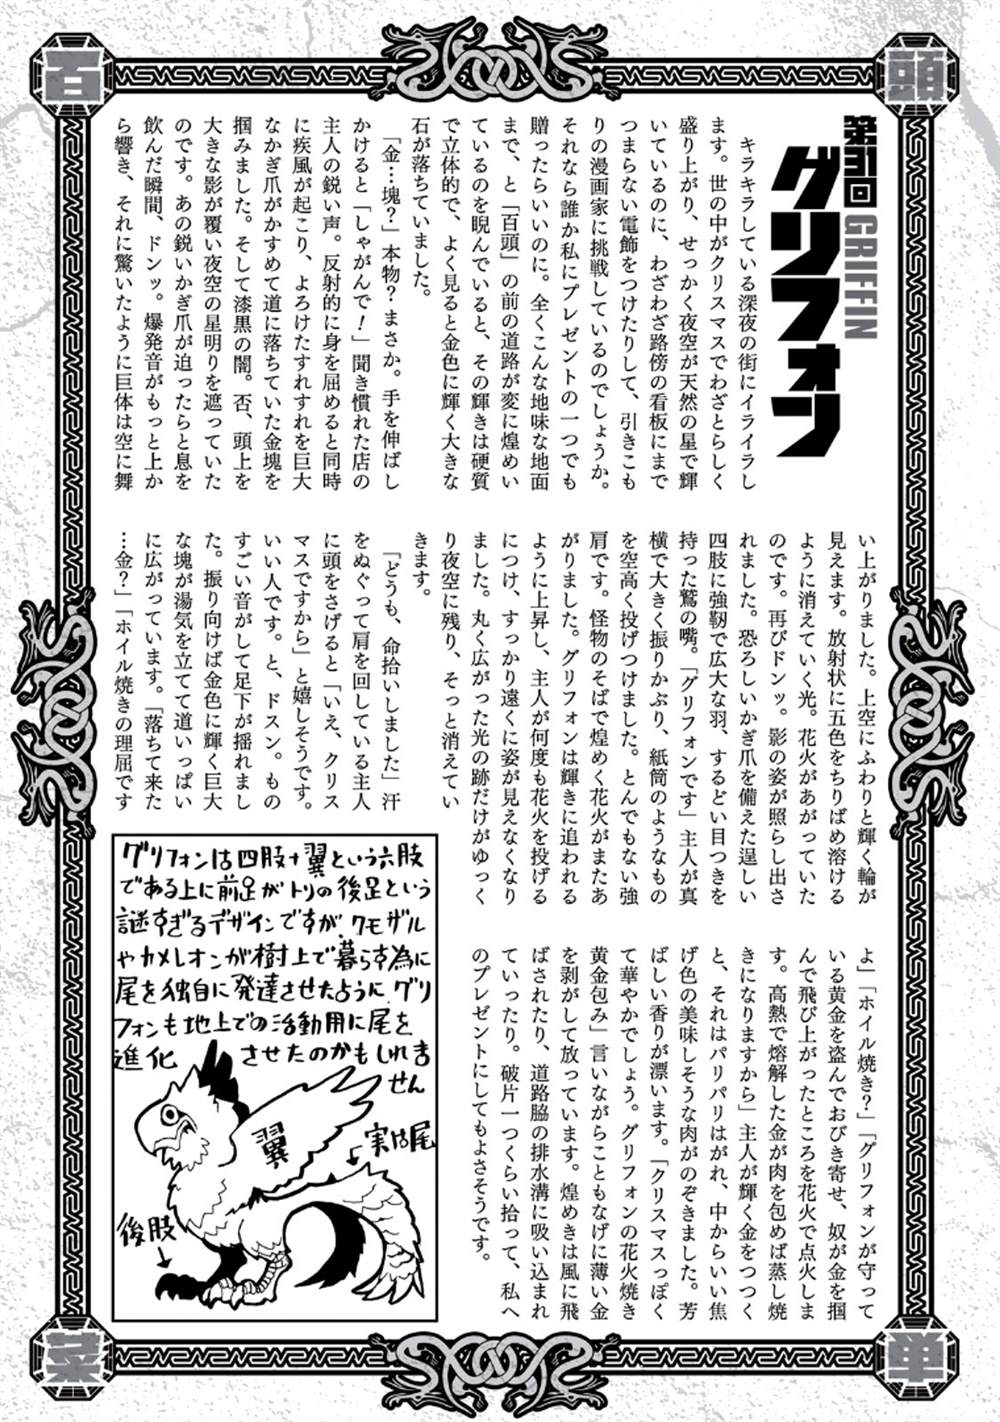 百
頭
菜
単
第31回
グリフォン
GRIFFIN
キラキラしている深夜の街にイライラし
ます。世の中がクリスマスでわざとらしく
盛り上がり、せっかく夜空が天然の星で輝
いているのに、わざわざ路傍の看板にまで
つまらない電飾をつけたりして、引きこも
りの漫画家に挑戦しているのでしょうか。
それなら誰か私にプレゼントの一つでも
贈ったらいいのに。全くこんな地味な地面
まで、と「百頭」の前の道路が変に煌めい
ているのを睨んでいると、その輝きは硬質
で立体的で、よく見ると金色に輝く大きな
石が落ちていました。
「金…塊?」本物?まさか。手を伸ばし
かけると「しゃがんで!」聞き慣れた店の
主人の鋭い声。反射的に身を屈めると同時
に疾風が起こり、よろけたすれすれを巨大
なかぎ爪がかすめて道に落ちていた金塊を
掴みました。そして漆黒の闇。否、頭上を
大きな影が覆い夜空の星明りを遮っていた
のです。あの鋭いかぎ爪が迫ったらと息を
飲んだ瞬間、ドンッ。爆発音がもっと上か
ら響き、それに驚いたように巨体は空に舞
い上がりました。上空にふわりと輝く輪が
見えます。放射状に五色をちりばめ溶ける
ように消えていく光。花火があがっていた
のです。再びドンッ。影の姿が照らし出さ
れました。恐ろしいかぎ爪を備えた逞しい
四肢に強靭で広大な羽、するどい目つきを
持った鷲の嘴。「グリフォンです」主人が真
横で大きく振りかぶり、紙筒のようなもの
を空高く投げつけました。とんでもない強
肩です。怪物のそばで煌めく花火がまたあ
がりました。グリフォンは輝きに追われる
ように上昇し、主人が何度も花火を投げる
につけ、すっかり遠くに姿が見えなくなり
ました。丸く広がった光の跡だけがゆっく
り夜空に残り、そっと消えてい
きます。
「どうも、命拾いしました」汗
をぬぐって肩を回している主人
に頭をさげると「いえ、クリス
マスですから」と嬉しそうです。
いい人です。と、ドスン。もの
すごい音がして足下が揺れまし
た。振り向けば金色に輝く巨大
な塊が湯気を立てて道いっぱい
に広がっています。「落ちて来た
…金?」「ホイル焼きの理屈です
よ」「ホイル焼き?」「グリフォンが守って
いる黄金を盗んでおびき寄せ、奴が金を掴
んで飛び上がったところを花火で点火しま
す。高熱で熔解した金が肉を包めば蒸し焼
きになりますから」主人が輝く金をつつく
と、それはパリパリはがれ、中からいい焦
げ色の美味しそうな肉がのぞきました。芳
ばしい香りが漂います。「クリスマスっぽく
て華やかでしょう。グリフォンの花火焼き
黄金包み」言いながらこともなげに薄い金
を剥がして放っています。煌めきは風に飛
ばされたり、道路脇の排水溝に吸い込まれ
ていったり。破片一つくらい拾って、私へ
のプレゼントにしてもよさそうです。
グリフォンは四肢+翼という六肢
である上に前足がトリの後足という
謎すぎるデザインですが、クモザル
やカメレオンが樹上で暮らす為に
尾を独自に発達させたように、グリ
フォンも地上での活動用に尾を
進化させたのかもしれま
せん
翼
実は尾
後肢